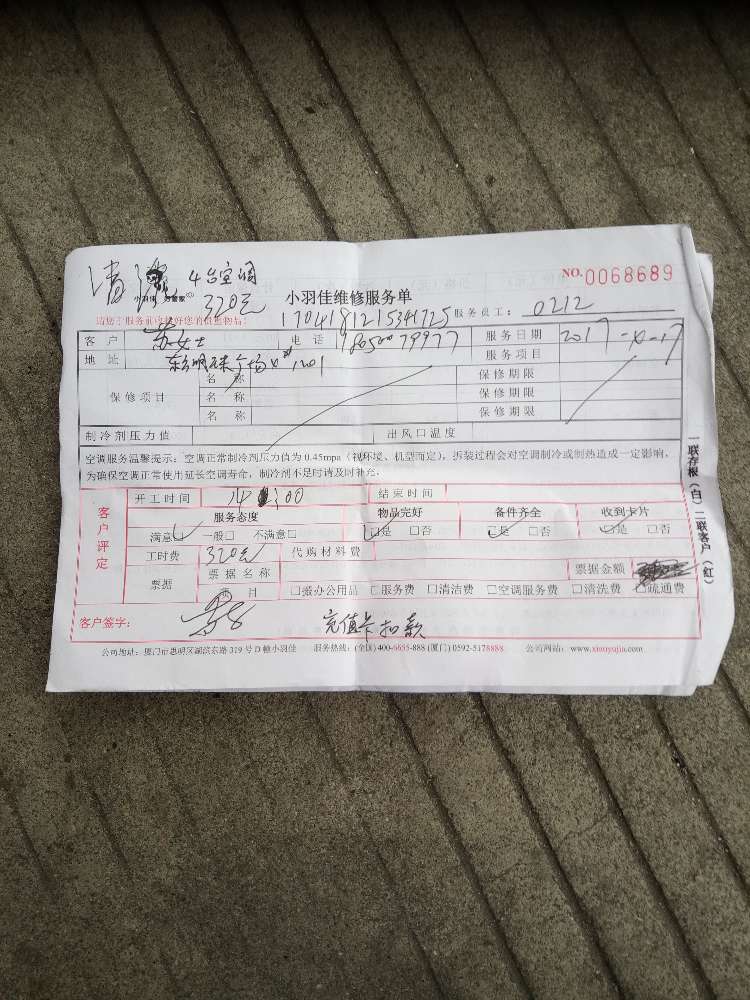 清洗 4台空调
320元
小羽佳 万管家
NO.0068689
小羽佳维修服务单
请您于服务前收拾好您的贵重物品
170418121534725 服务员工：0212
客户 苏女士 电话 服务日期 2017-4-17
地址 服务项目
保修项目 名称 保修期限
名称 保修期限
名称 保修期限
制冷剂压力值 出风口温度
空调服务温馨提示：空调正常制冷剂压力值为0.45mpa（视环境、机型而定），拆装过程会对空调制冷或制热造成一定影响，
为确保空调正常使用延长空调寿命，制冷剂不足时请及时补充。
客户评定
开工时间 结束时间
服务态度 物品完好 备件齐全 收到卡片
满意 一般□ 不满意□ □是 □否 □是 □否 □是 □否
工时费 320元 代购材料费
票据 票据名称 票据金额
项目 □搬办公用品 □服务费 □清洁费 □空调服务费 □清洗费 □疏通费
客户签字： 充值卡扣款
公司地址：厦门市思明区湖滨东路319号D幢小羽佳 服务热线：(全国)400-6655-888 (厦门) 0592-5178888 公司网站：www.xiaoyujia.com
一联存根（白）二联客户（红）